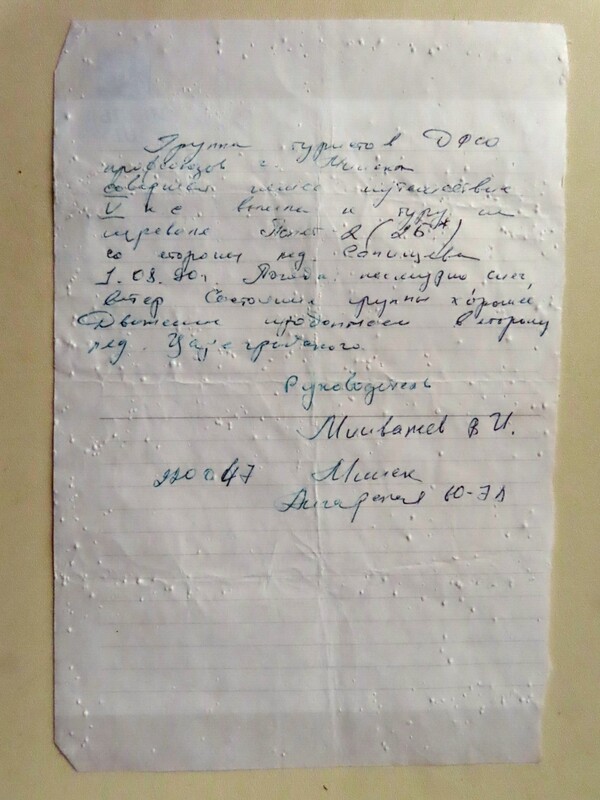 Группа туристов ДФСО
профсоюзов г. Минска
совершая пешее путешествие
V к.с вышла к туру на
перевале 2 (2Б*)
со стороны лед.
1.08.90г. Погода пасмурно снег,
ветер Состояние группы хорошее,
Движение продолжаем в сторону
лед.
Руководитель
В И.
220047 Минск
Ангарская